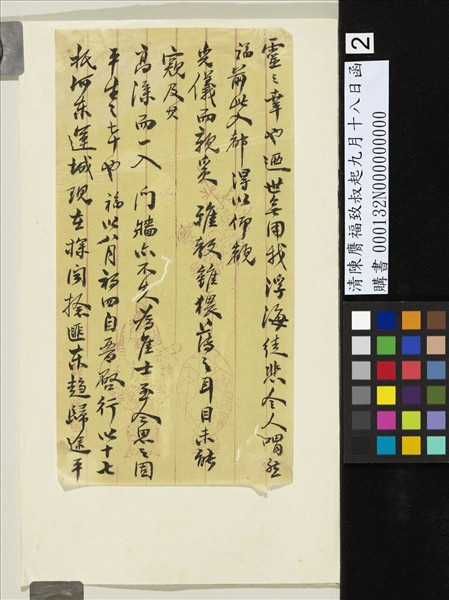 靈之幸也迺世無用我浮海徒悲令人喟然
福前此入都得以仰觀
光儀而親炙雅教雖猥之耳目未能
窺及其
高深而一入門牆亦不失為佳士至今思之固
平生之幸也福以八月初四自晉啓行以十七
抵河東運城現在探聞捻匪東趨歸途平
2
清陳膺福致叔起九月十八日函
購書 000132N000000000